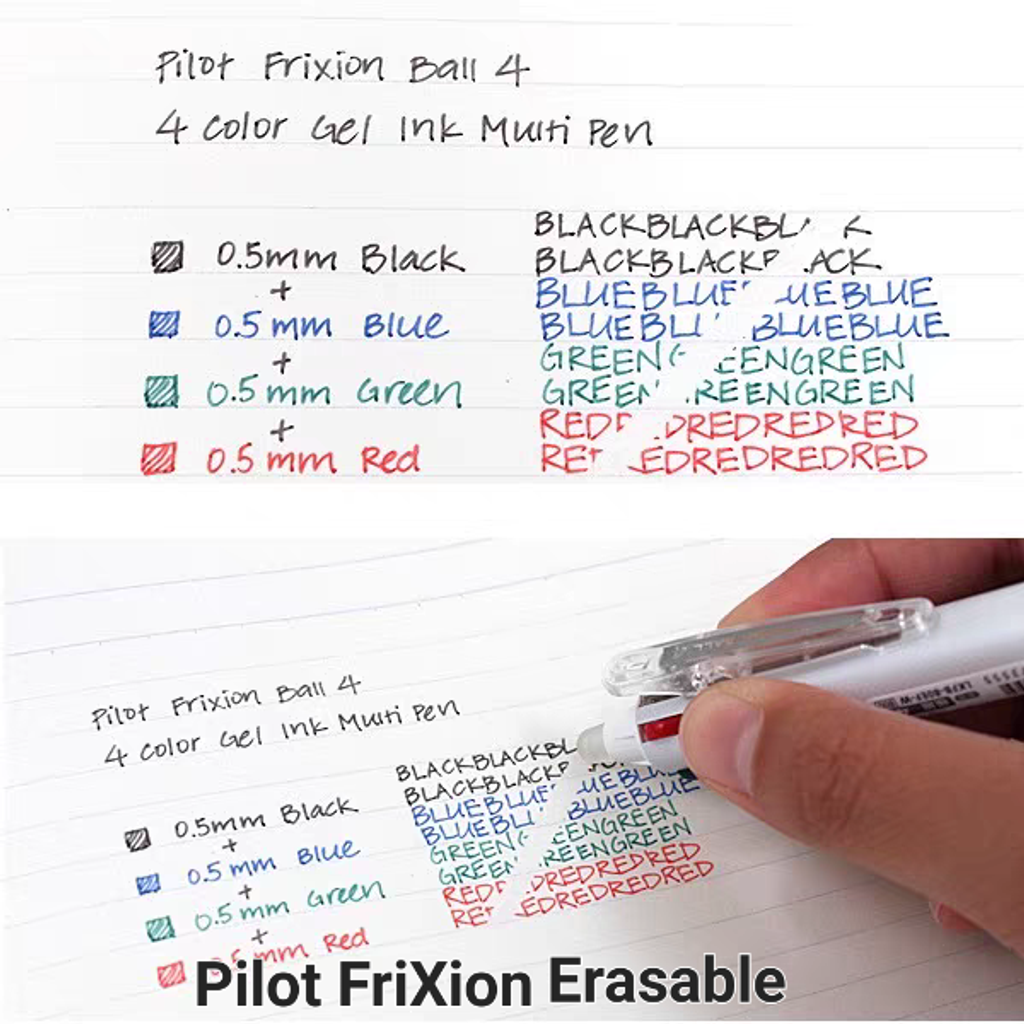 Pilot Frixion Ball 4
4 Color Gel Ink Multi Pen
0.5mm Black
+
0.5mm Blue
+
0.5mm Green
+
0.5mm Red
BLACKBLACKBL K
BLACKBLACK ACK
BLUEBLUE UEBLUE
BLUEBL BLUEBLUE
GREEN EENGREEN
GREEN REENGREEN
RED DREDREDRED
RE EDREDREDRED
Pilot Frixion Ball 4
4 Color Gel Ink Multi Pen
0.5mm Black
+
0.5mm Blue
+
0.5mm Green
+
0.5mm Red
BLACKBLACKBL
BLACKBLACK
BLUEBLUE UEBLU
BLUEBL BLUEBLUE
GREEN EENGREEN
GREE REENGREEN
RED DREDREDRED
RE EDREDREDRED
Pilot FriXion Erasable